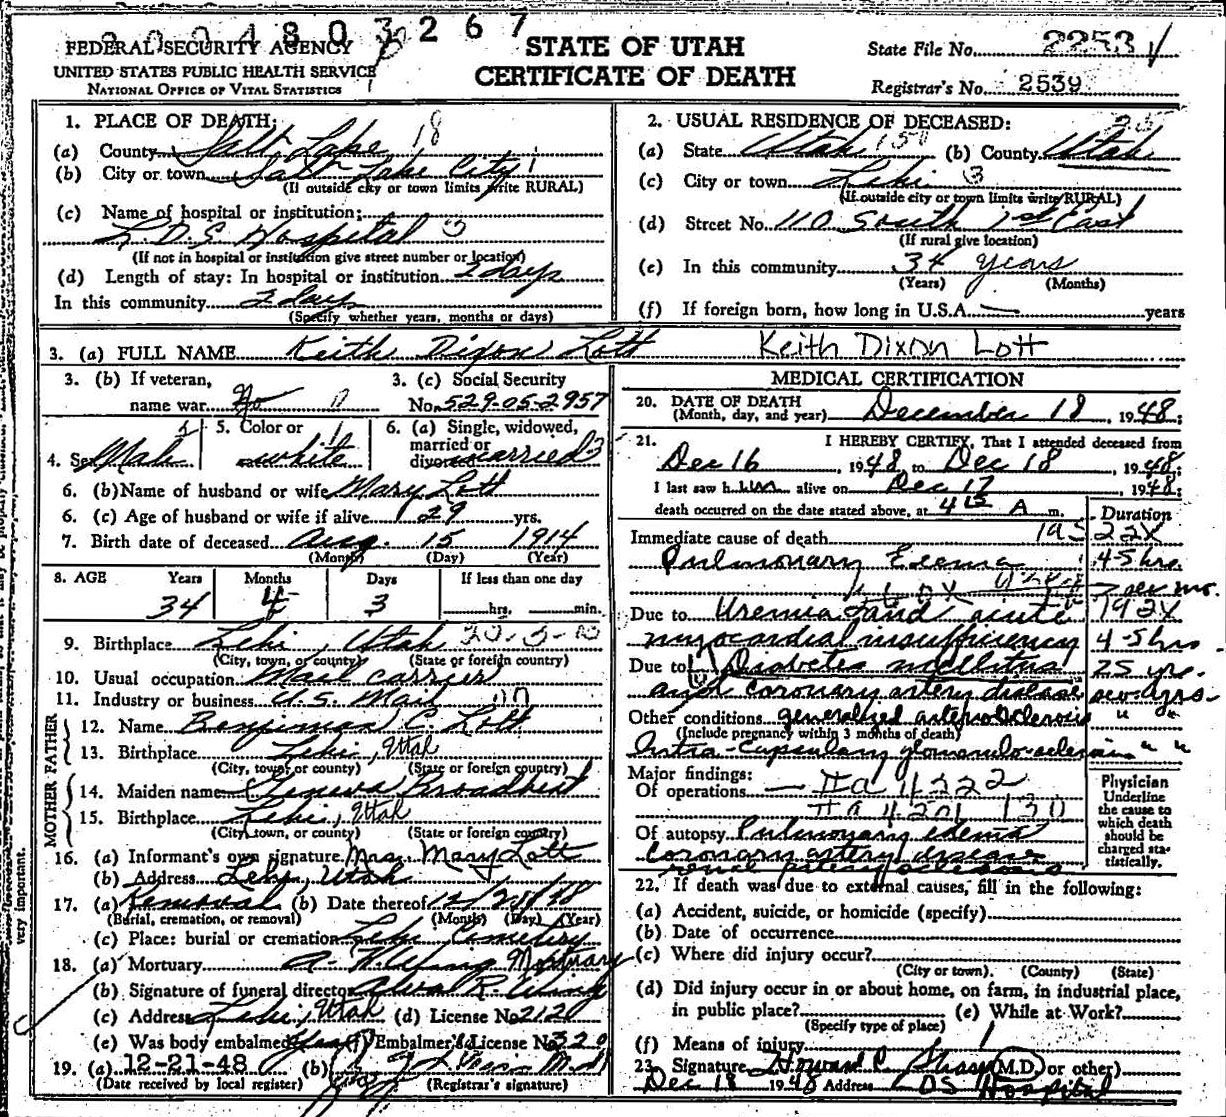 2004803267
FEDERAL SECURITY AGENCY
UNITED STATES PUBLIC HEALTH SERVICE
NATIONAL OFFICE OF VITAL STATISTICS
STATE OF UTAH
CERTIFICATE OF DEATH
State File No. 2253
Registrar's No. 2539
1. PLACE OF DEATH: 18
(a) County Salt Lake
(b) City or town Salt Lake City 1
(If outside city or town limits write RURAL)
(c) Name of hospital or institution:
L.D.S. Hospital
(If not in hospital or institution give street number or location)
(d) Length of stay: In hospital or institution 2 days
In this community 2 days
(Specify whether years, months or days)
2. USUAL RESIDENCE OF DECEASED:
(a) State Utah (b) County Utah
(c) City or town Lehi 3
(If outside city or town limits write RURAL)
(d) Street No. 110 South 1st East
(If rural give location)
(e) In this community 34 years
(Years) (Months)
(f) If foreign born, how long in U.S.A. — years
3. (a) FULL NAME Keith Dixon Lott Keith Dixon Lott
3. (b) If veteran, name war No 0
3. (c) Social Security No. 529-05-2957
4. Sex Male
5. Color or white
6. (a) Single, widowed, married or divorced married
6. (b) Name of husband or wife Mary Lott
6. (c) Age of husband or wife if alive 29 yrs.
7. Birth date of deceased Aug. 15 1914
(Month) (Day) (Year)
8. AGE Years Months Days If less than one day
34 4 3 hrs. min.
9. Birthplace Lehi, Utah
(City, town, or county) (State or foreign country)
10. Usual occupation Mail carrier
11. Industry or business U.S. Mail
FATHER
12. Name Benjiman C. Lott
13. Birthplace Lehi, Utah
(City, town or county) (State or foreign country)
MOTHER
14. Maiden name Geneva Broadbent
15. Birthplace Lehi, Utah
(City, town, or county) (State or foreign country)
16. (a) Informant's own signature Mrs. Mary Lott
(b) Address Lehi, Utah
17. (a) Removal (b) Date thereof 12/21/48
(Burial, cremation, or removal) (Month) (Day) (Year)
(c) Place: burial or cremation Lehi Cemetery
18. (a) Mortuary A. H. Wing Mortuary
(b) Signature of funeral director Alva R. Wing
(c) Address Lehi, Utah (d) License No. 2120
(e) Was body embalmed Yes (f) Embalmer's License No. 320
19. (a) 12-21-48 (b)
(Date received by local register) (Registrar's signature)
very important.
MEDICAL CERTIFICATION
20. DATE OF DEATH
(Month, day, and year) December 18, 1948;
21. I HEREBY CERTIFY, That I attended deceased from
Dec 16, 1948, to Dec 18, 1948;
I last saw him alive on Dec 17 1948;
death occurred on the date stated above, at 4 15 A m.
Duration
Immediate cause of death
Pulmonary Edema 45 hrs.
Due to Uremia and acute
myocardial insufficiency 45 hrs
Due to Diabetes mellitus 25 yrs.
and coronary artery disease sev. yrs.
Other conditions generalized arteriosclerosis " "
(Include pregnancy within 3 months of death)
Intra-Capsulary glomerulo-sclerosis " "
Major findings:
Of operations
Of autopsy Pulmonary edema
Coronary artery disease
Physician
Underline
the cause to
which death
should be
charged sta-
tistically.
22. If death was due to external causes, fill in the following:
(a) Accident, suicide, or homicide (specify)
(b) Date of occurrence
(c) Where did injury occur?
(City or town). (County) (State)
(d) Did injury occur in or about home, on farm, in industrial place,
in public place? (e) While at Work?
(Specify type of place)
(f) Means of injury
23. Signature Howard P. (M.D. or other)
Dec 18 1948 Address LDS Hospital